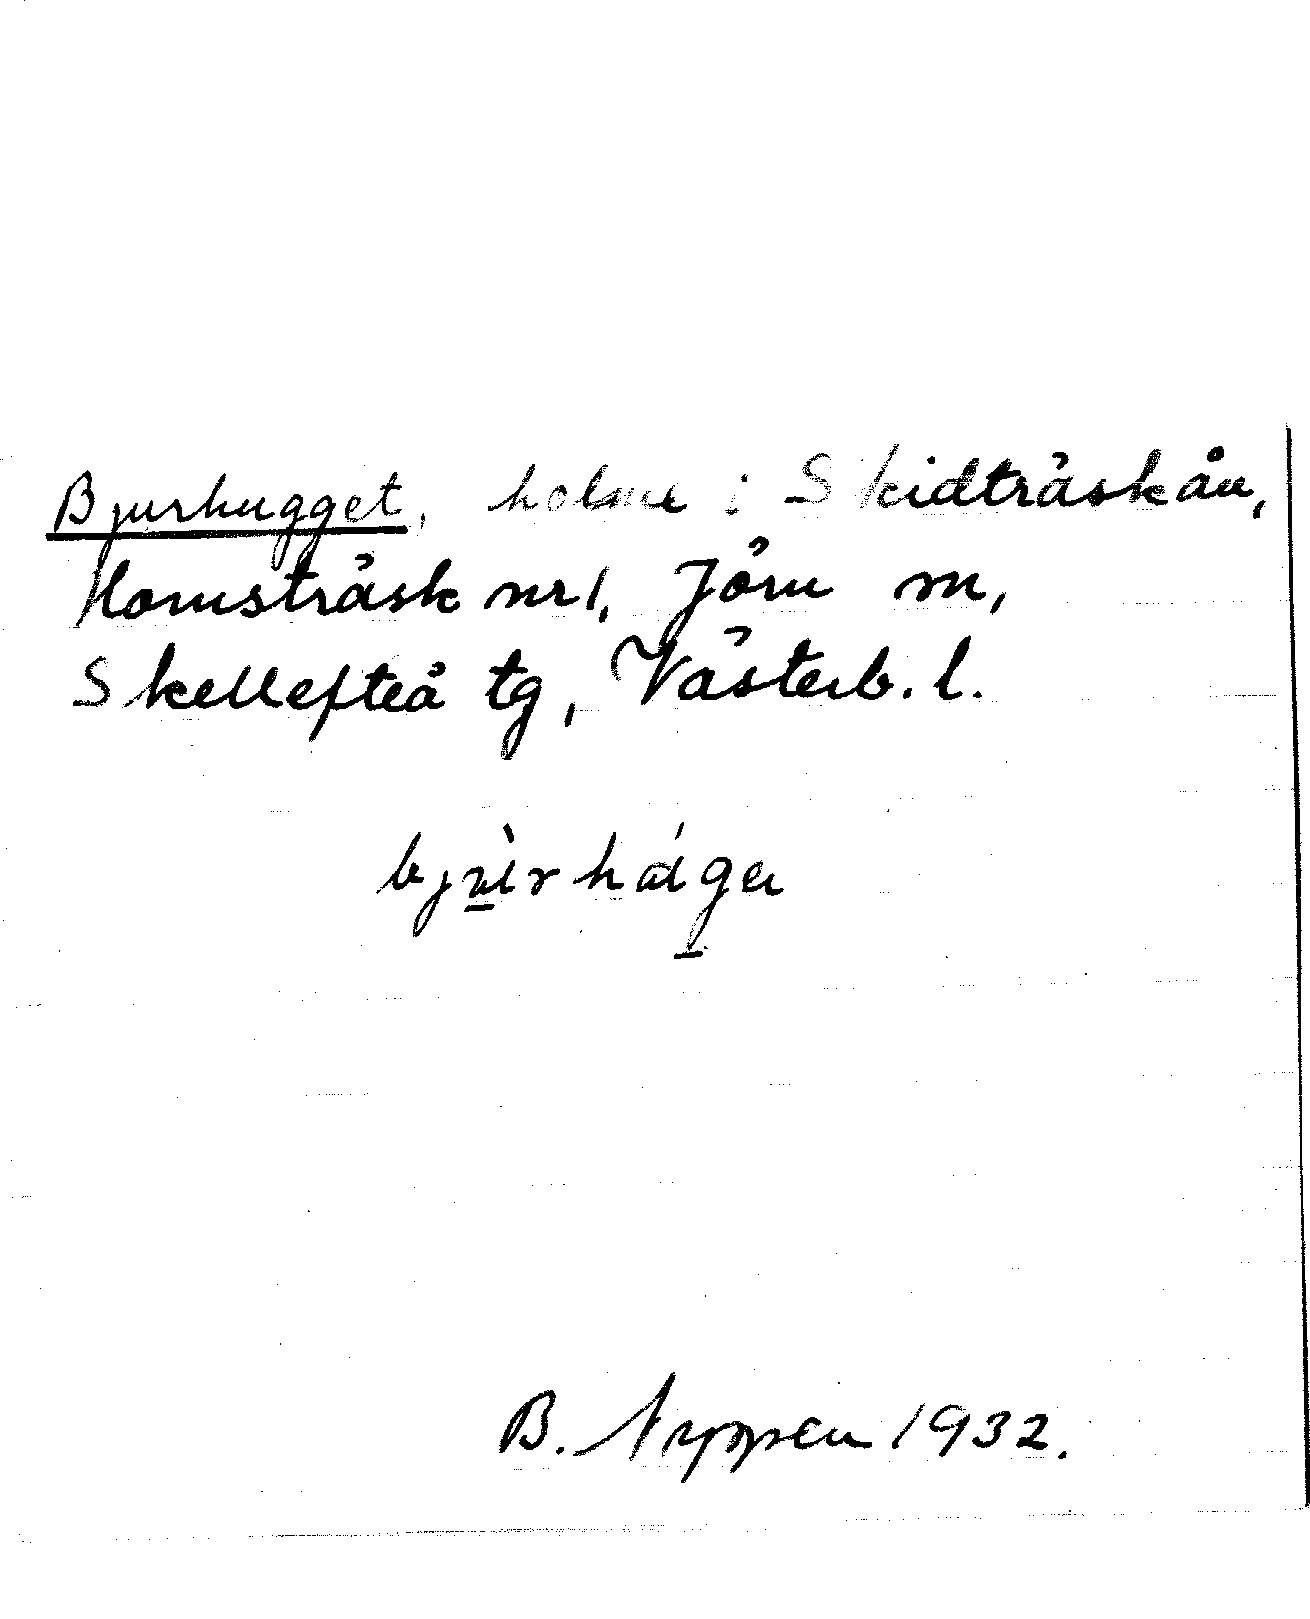 Bjurhugget, holme i Skidträskån,
Hornsträsk nr 1, Jörn sn,
Skellefteå tg, Västerb. l.
B. Nyppen 1932.